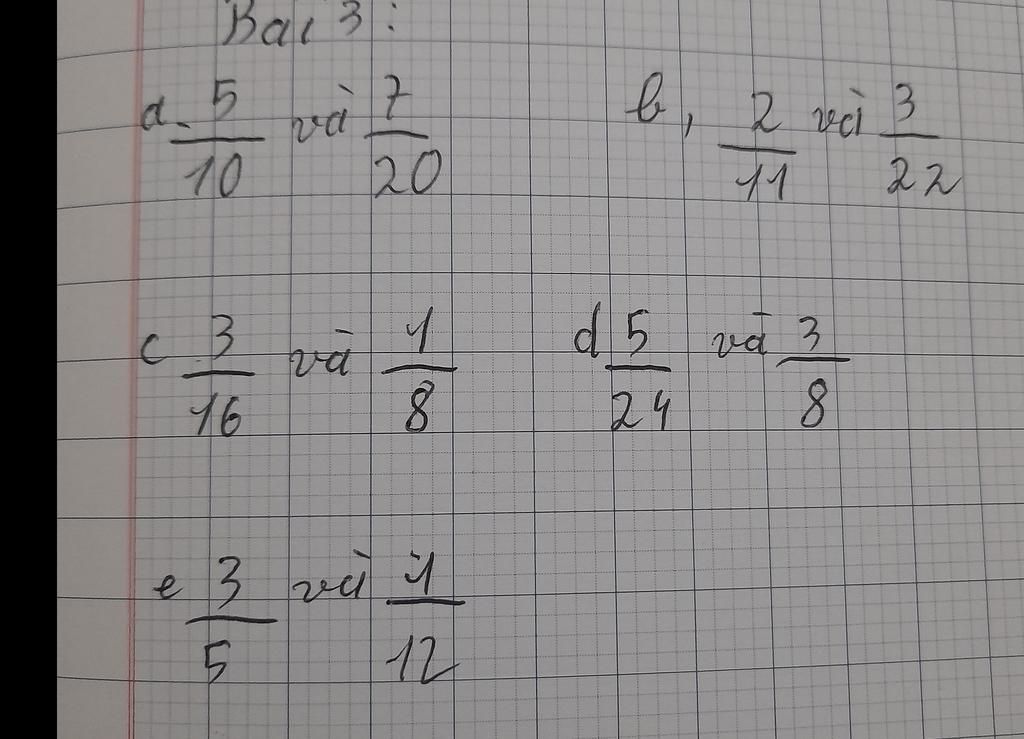 Bài 3:
a. 5/10 và 7/20 b, 2/11 và 3/22
c 3/16 và 1/8 d 5/24 và 3/8
e 3/5 và 1/12